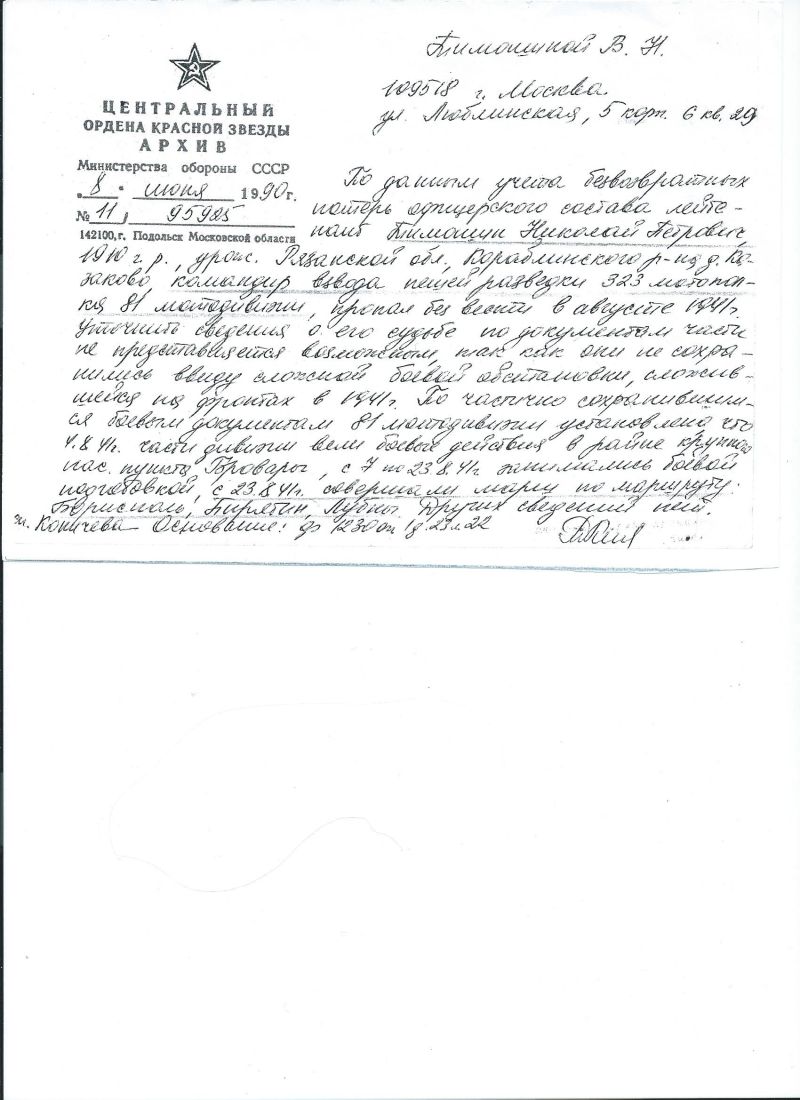 Тимошиной В. Н.
109518 г. Москва
ул. Люблинская, 5 корп. 6 кв. 29
ЦЕНТРАЛЬНЫЙ
ОРДЕНА КРАСНОЙ ЗВЕЗДЫ
АРХИВ
Министерства обороны СССР
„8" июня 1990г.
№ 11/95985
142100, г. Подольск Московской области
По данным учета безвозвратных
потерь офицерского состава лейте-
нант Тимошин Николай Петрович,
1910 г.р., урож. Рязанской обл., Кораблинского р-на, д. Ка-
заково, командир взвода пешей разведки 323 мотопол-
ка 81 мотодивизии, пропал без вести в августе 1941г.
Уточнить сведения о его судьбе по документам части
не представляется возможным, так как они не сохра-
нились ввиду сложной боевой обстановки, сложив-
шейся на фронтах в 1941г. По частично сохранившим-
ся боевым документам 81 мотодивизии установлено что
4.8.41г. части дивизии вели боевые действия в районе крупного
нас. пункта Бровары, с 7 по 23.8.41г. занимались боевой
подготовкой, с 23.8.41г. совершали марш по маршруту:
Борисполь, Пирятин, Лубны. Других сведений нет.
Коничева Основание: ф 1230 оп 1 д. 23 л 22